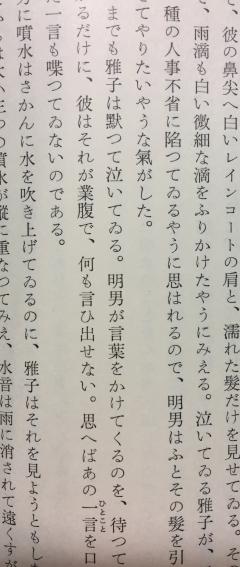 て、彼の鼻尖へ白いレインコートの肩と、濡れた髮だけを見せてゐる。その
、雨滴も白い微細な滴をふりかけたやうにみえる。泣いてゐる雅子が、
種の人事不省に陷つてゐるやうに思はれるので、明男はふとその髮を引
てやりたいやうな氣がした。
までも雅子は默つて泣いてゐる。明男が言葉をかけてくるのを、待つて
るだけに、彼はそれが業腹で、何も言ひ出せない。思へばあの一言を口
ひとこと
た一言も喋つてゐないのである。
方に噴水はさかんに水を吹き上げてゐるのに、雅子はそれを見ようともしな
の噴水が縱に重なつてみえ、水音は雨に消されて遠くすが